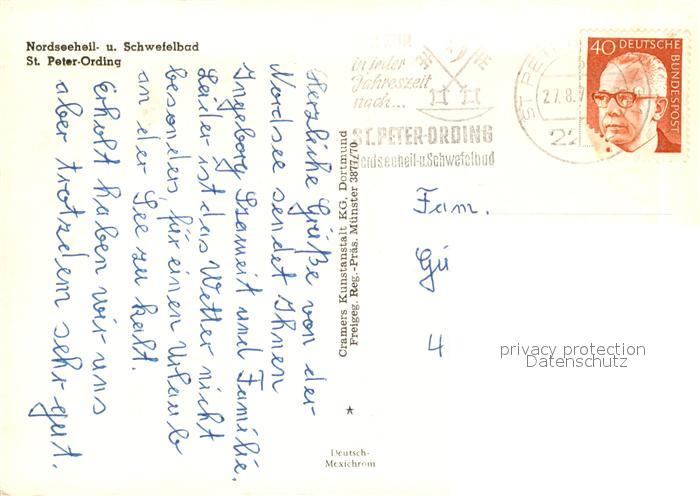 Nordseeheil- u. Schwefelbad
St. Peter-Ording
in jeder
Jahreszeit
nach...
ST. PETER-ORDING
Nordseeheil-u.Schwefelbad
ST. PET
27.8.7
22
40 DEUTSCHE
BUNDESPOST
Herzliche Grüße von der
Nordsee sendet Ihnen
Ingeborg Szameit und Familie.
Leider ist das Wetter nicht
besonders, für einen Urlaub
an der See zu kalt.
Erholt haben wir uns
aber trotzdem sehr gut.
Cramers Kunstanstalt KG. Dortmund
Freigeg. Reg.-Präs. Münster 3877/70
Fam.
Gü
4
privacy protection
Datenschutz
Deutsch-
Mexichrom